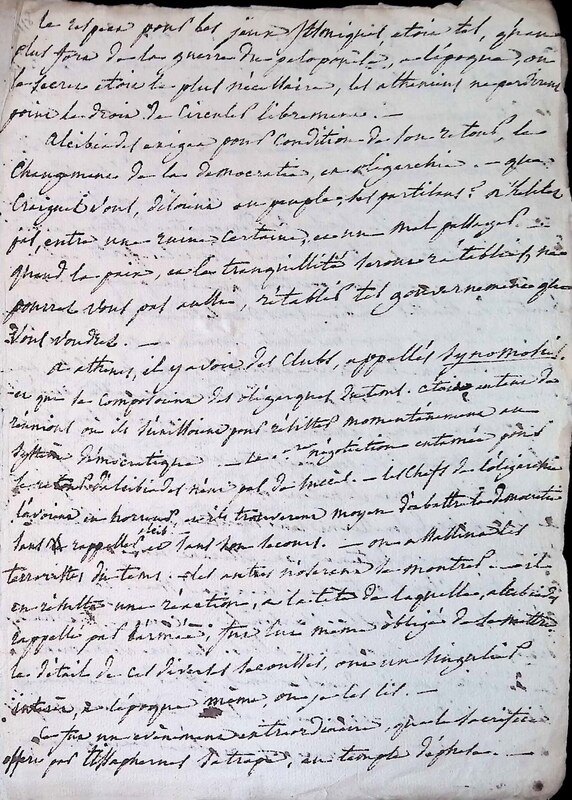 le respect pour les jeux Isthmiques etoit tel, qu'au
plus fort de la guerre du peloponese, a l'époque, où
le secret etoit le plus nécessaire, les atheniens ne perdirent
point le droit de circuler librement. —
Alcibiades exigea pour condition de son retour, le
changement de la democratie, en oligarchie. — que
craignez vous, disoit au peuple, ses partisans? n'hésitez
pas, entre une ruine certaine, et un mal passager. —
quand la paix, et la tranquillité seront rétablies, ne
pourrez vous pas aussi, rétablir tel gouvernement que
vous voudrez. —
a athenes, il y avoit des clubs appellés Synomosies.
et qui se composoient des oligarques du tems. c'etoit
réunions où ils s'unissoient pour résister momentanément au
système démocratique — négotiation entamée pour
le retour d'alcibiades n'eut pas de succès. — les chefs de l'oligarchie
l'avoient en horreur, et ils trouverent moyen d'abattre la democratie
sans rappeller et sans son secours. — on assassina les
terroristes du tems. — les autres n'oserent se montrer. — il
en résulta une réaction, a la tête de laquelle, alcibiades
rappellé par l'armée, fut lui même obligé de se mettre
le détail de ces diverses secousses, ont un singulier
intérêt, a l'époque même, où je les lis. —
ce fut un évènement extraordinaire, que le sacrifice
offert par Tissaphernes satrape, au temple d'éphese. —